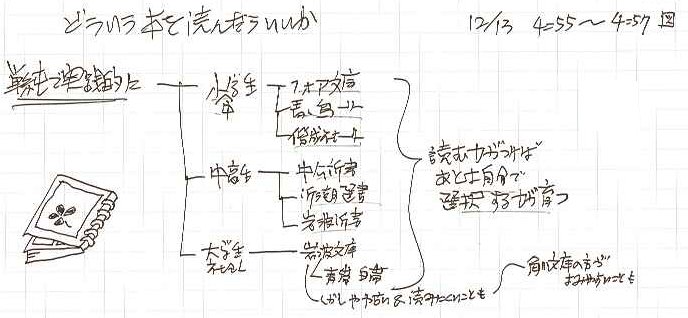 どういう本を読んだらいいか
12/13 4:55～4:57 図
単純で実践的に
小学生
フォア文庫
青い鳥
偕成社
中高生
中公新書
新潮選書
岩波新書
大学生
社会人
岩波文庫
青帯 白帯
しかしやや古い&読みにくいことも
角川文庫の方が
よみやすいことも
読む力がつけば
あとは自分で
選択する力が育つ